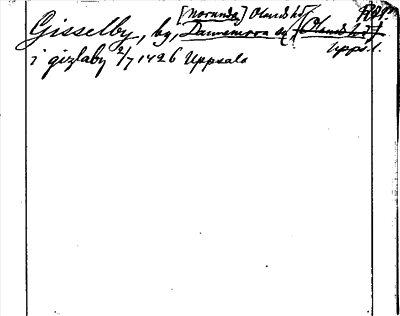 [Norunda] Olands hd
Gisselby, by, Dannemora sn, (Olands hd)
Upps. l.
i gizlaby 2/7 1426 Uppsala